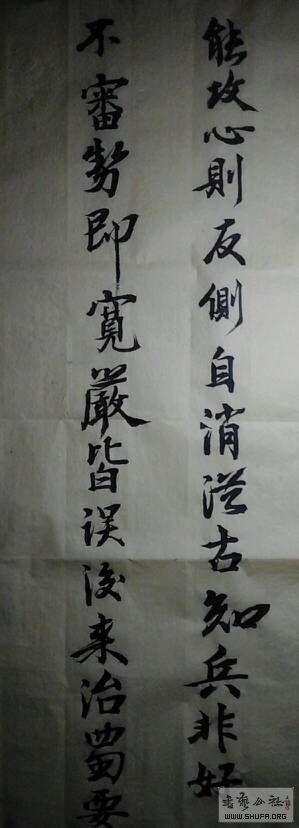 能攻心則反側自消從古知兵非好
不審勢即寬嚴皆誤後来治蜀要
书艺公社
WWW.SHUFA.ORG